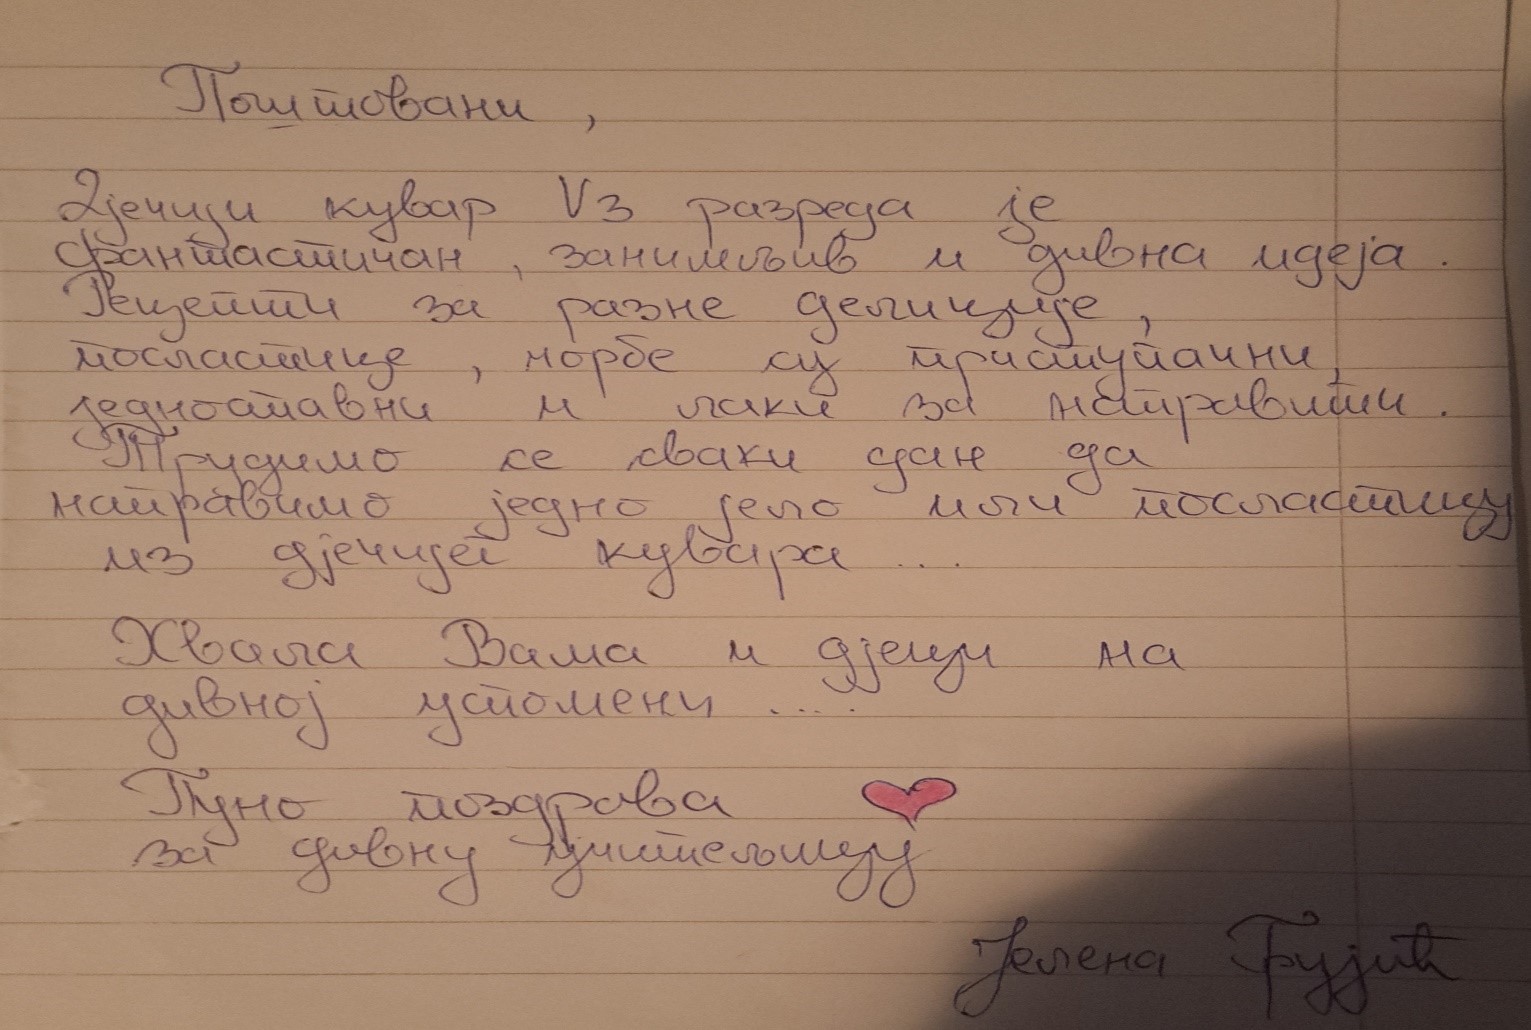 Поштовани,
Дјечији кувар V3 разреда је
фантастичан, занимљив и дивна идеја.
Рецепти за разне делиције,
посластице, чорбе су приступачни,
једноставни и лаки за направити.
Трудимо се сваки дан да
направимо једно јело или посластицу
из дјечијег кувара ....
Хвала Вама и дјеци на
дивној успомени ....
Пуно поздрава
за дивну учитељицу
Јелена Грујић